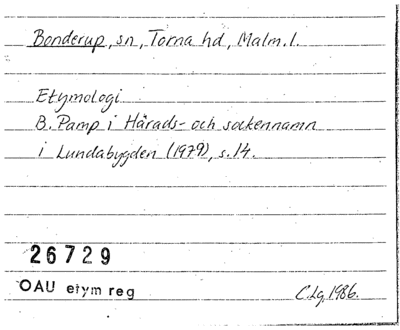 Bonderup, sn, Torna hd, Malm. l.
Etymologi
B. Pamp i Härads- och sockennamn
i Lundabygden (1979), s. 14.
26729
OAU etym reg
C. Lg. 1986.